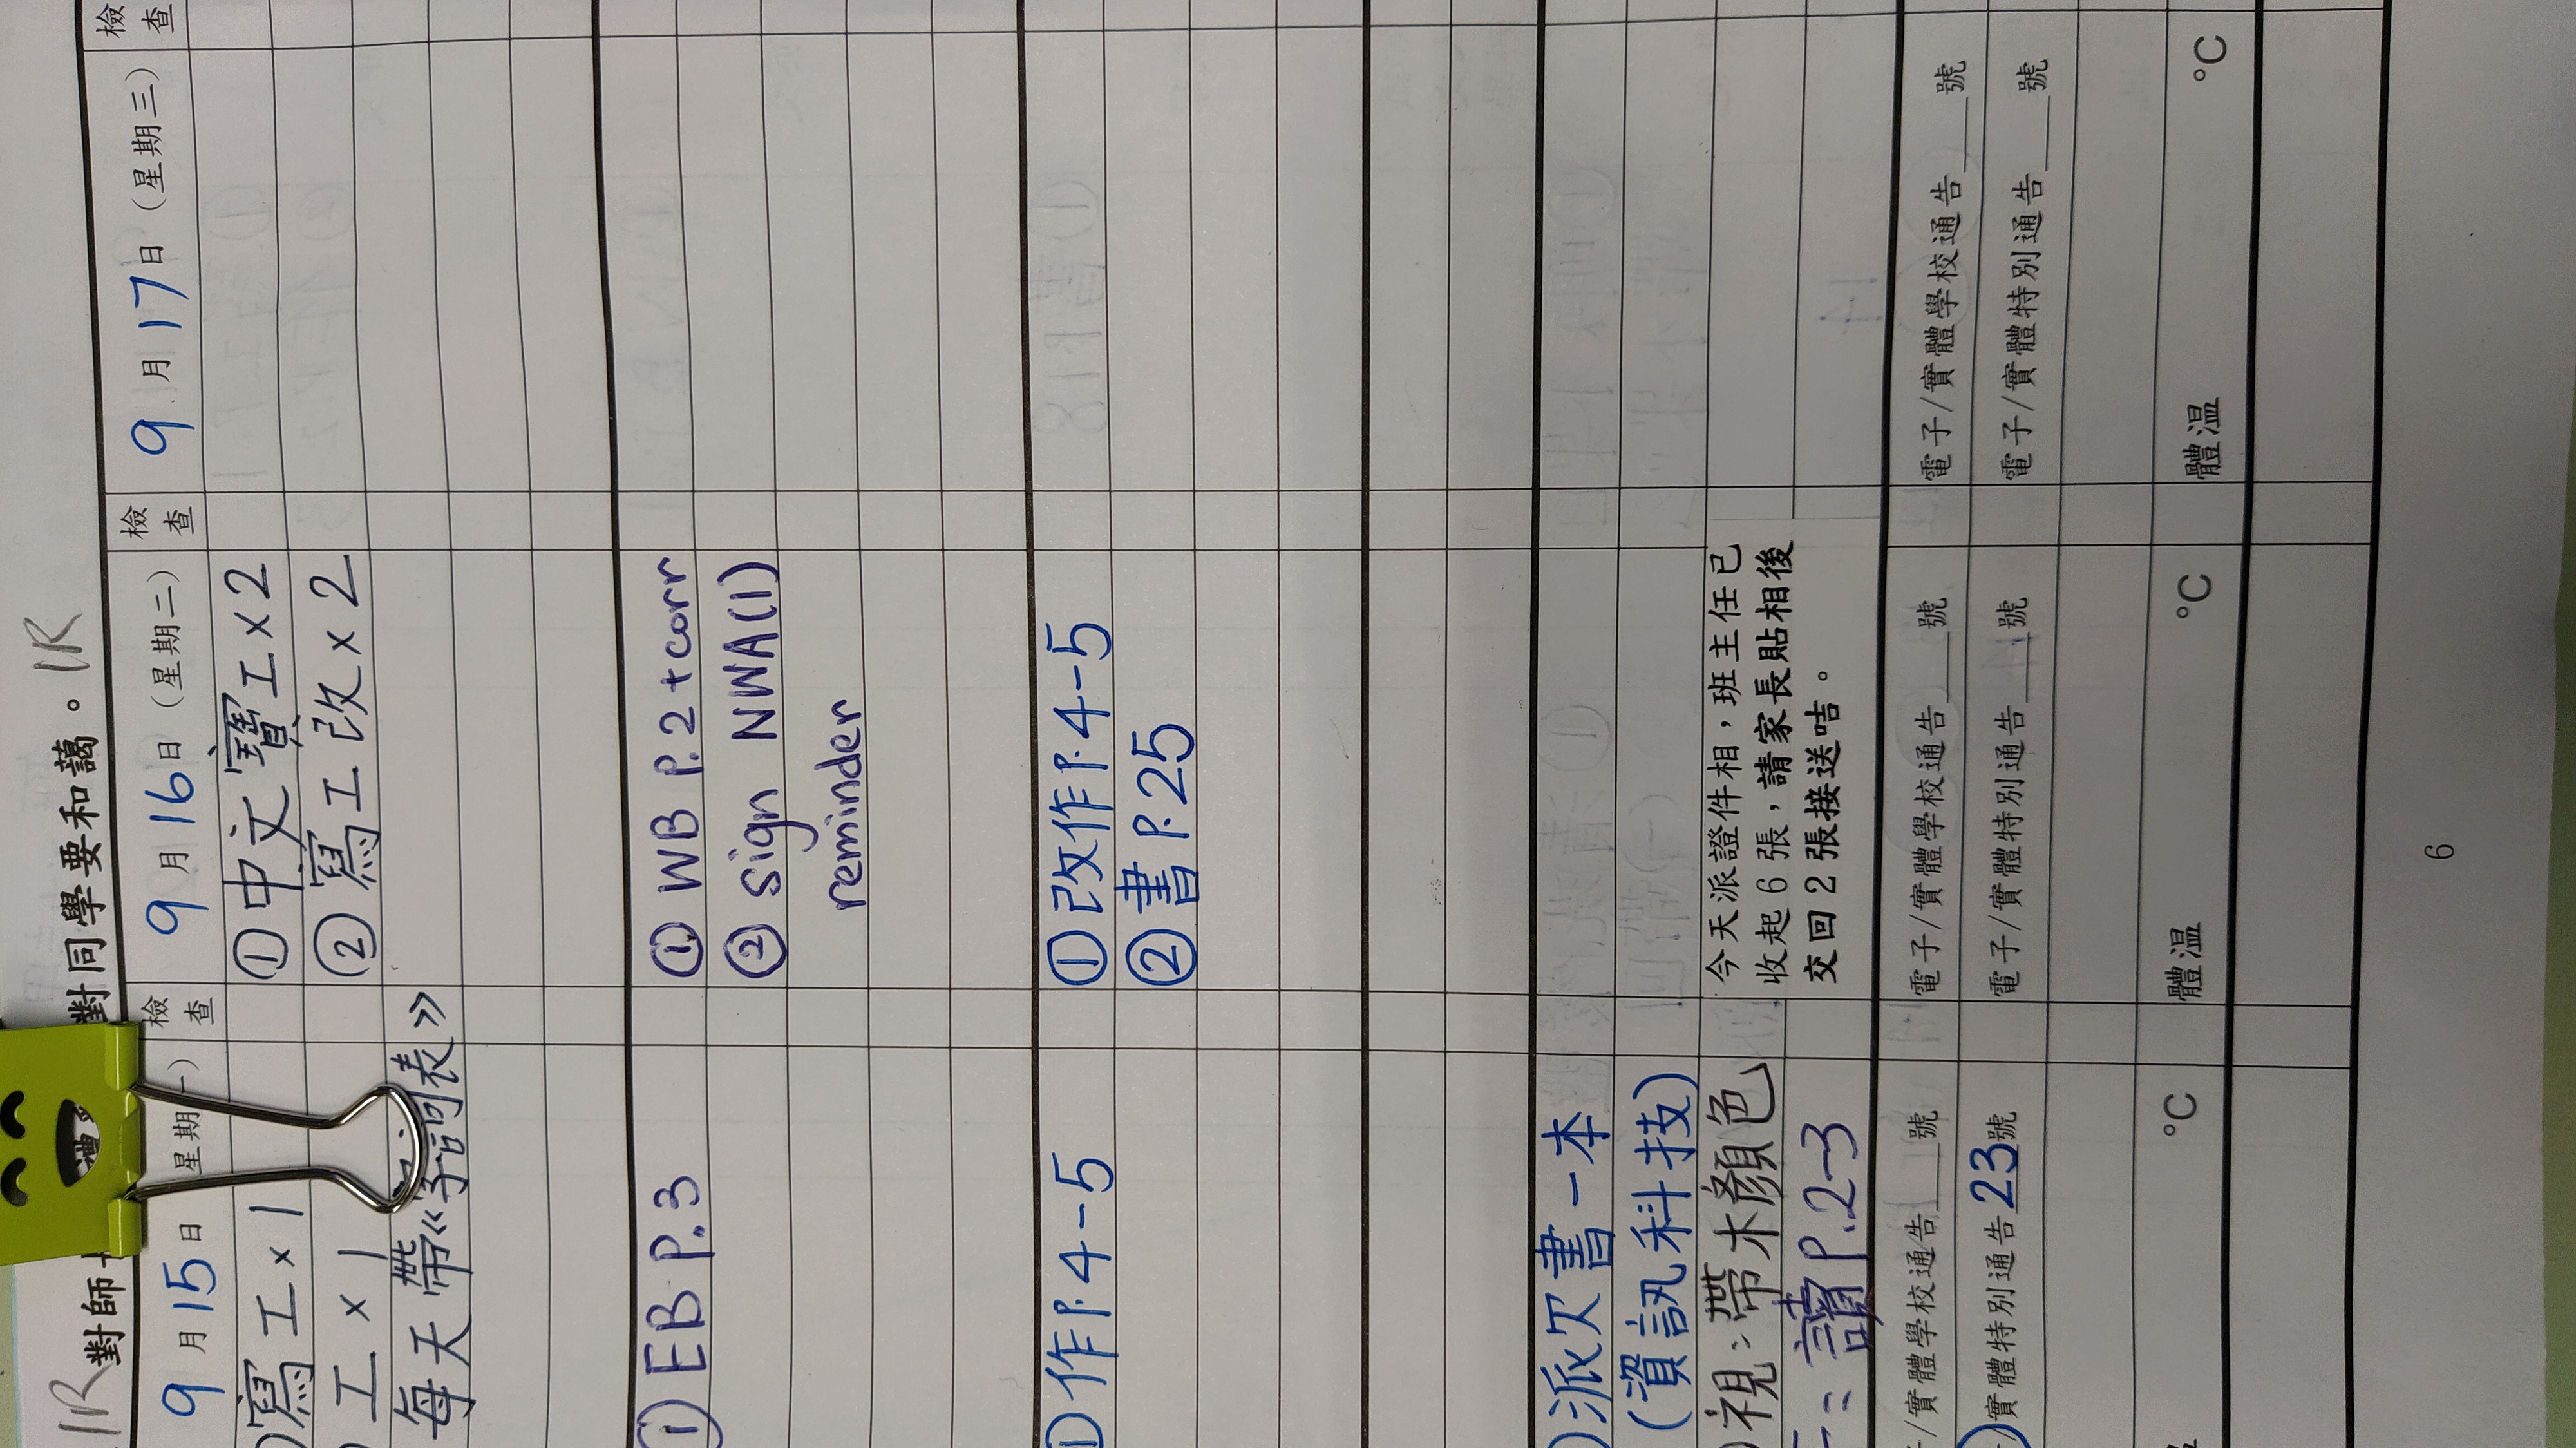 對師
對同學要和藹。1R
1R
9月15日
星期
檢查
寫工×1
工×1
每天帶《字詞表》
① EB P.3
① 作P.4-5
派欠書一本
(資訊科技)
視：帶木顏色
讀P.2-3
/實體學校通告___號
實體特別通告23號
°C
9月16日（星期二）
檢查
① 中文寶工×2
② 寫工改×2
① WB P.2 + corr
② Sign NWA(1)
reminder
① 改作P.4-5
② 書P.25
今天派證件相，班主任已
收起 6 張，請家長貼相後
交回 2 張接送咭。
電子/實體學校通告___號
電子/實體特別通告___號
體温 °C
9月17日（星期三）
檢查
電子/實體學校通告___號
電子/實體特別通告___號
體温 °C
6